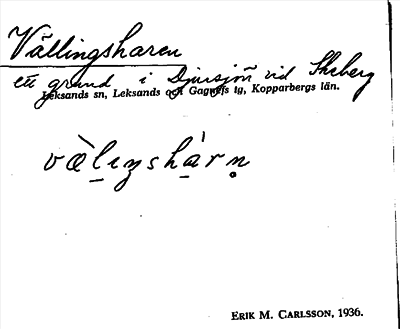 Vällingsharen
ett grund i Djursjön vid Skeberg
Leksands sn, Leksands och Gagnefs tg, Kopparbergs län.
væ̀lıŋshár̥n
ERIK M. CARLSSON, 1936.